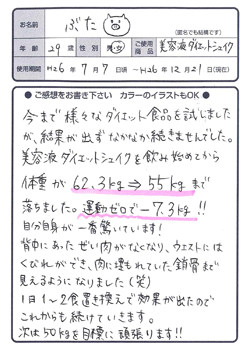 お名前 ぶた
(匿名でも結構です)
年齢 29歳 性別 男・女 ご使用商品 美容液ダイエットシェイク
使用期間 H26年7月7日頃 ~H26年12月21日(現在)
●ご感想をお書き下さい カラーのイラストもOK●
今まで様々なダイエット食品を試しました
が、結果が出ずなかなか続きませんでした。
美容液ダイエットシェイクを飲み始めてから
体重が 62.3kg⇒55kgまで
落ちました。運動ゼロで-7.3kg!!
自分自身が一番驚いています!
背中にあったぜい肉がなくなり、ウエストには
くびれができ、肉に埋もれていた鎖骨まで
見えるようになりました(笑)
1日1~2食置き換えで効果が出たので
これからも続けていきます。
次は50kgを目標に頑張ります!!